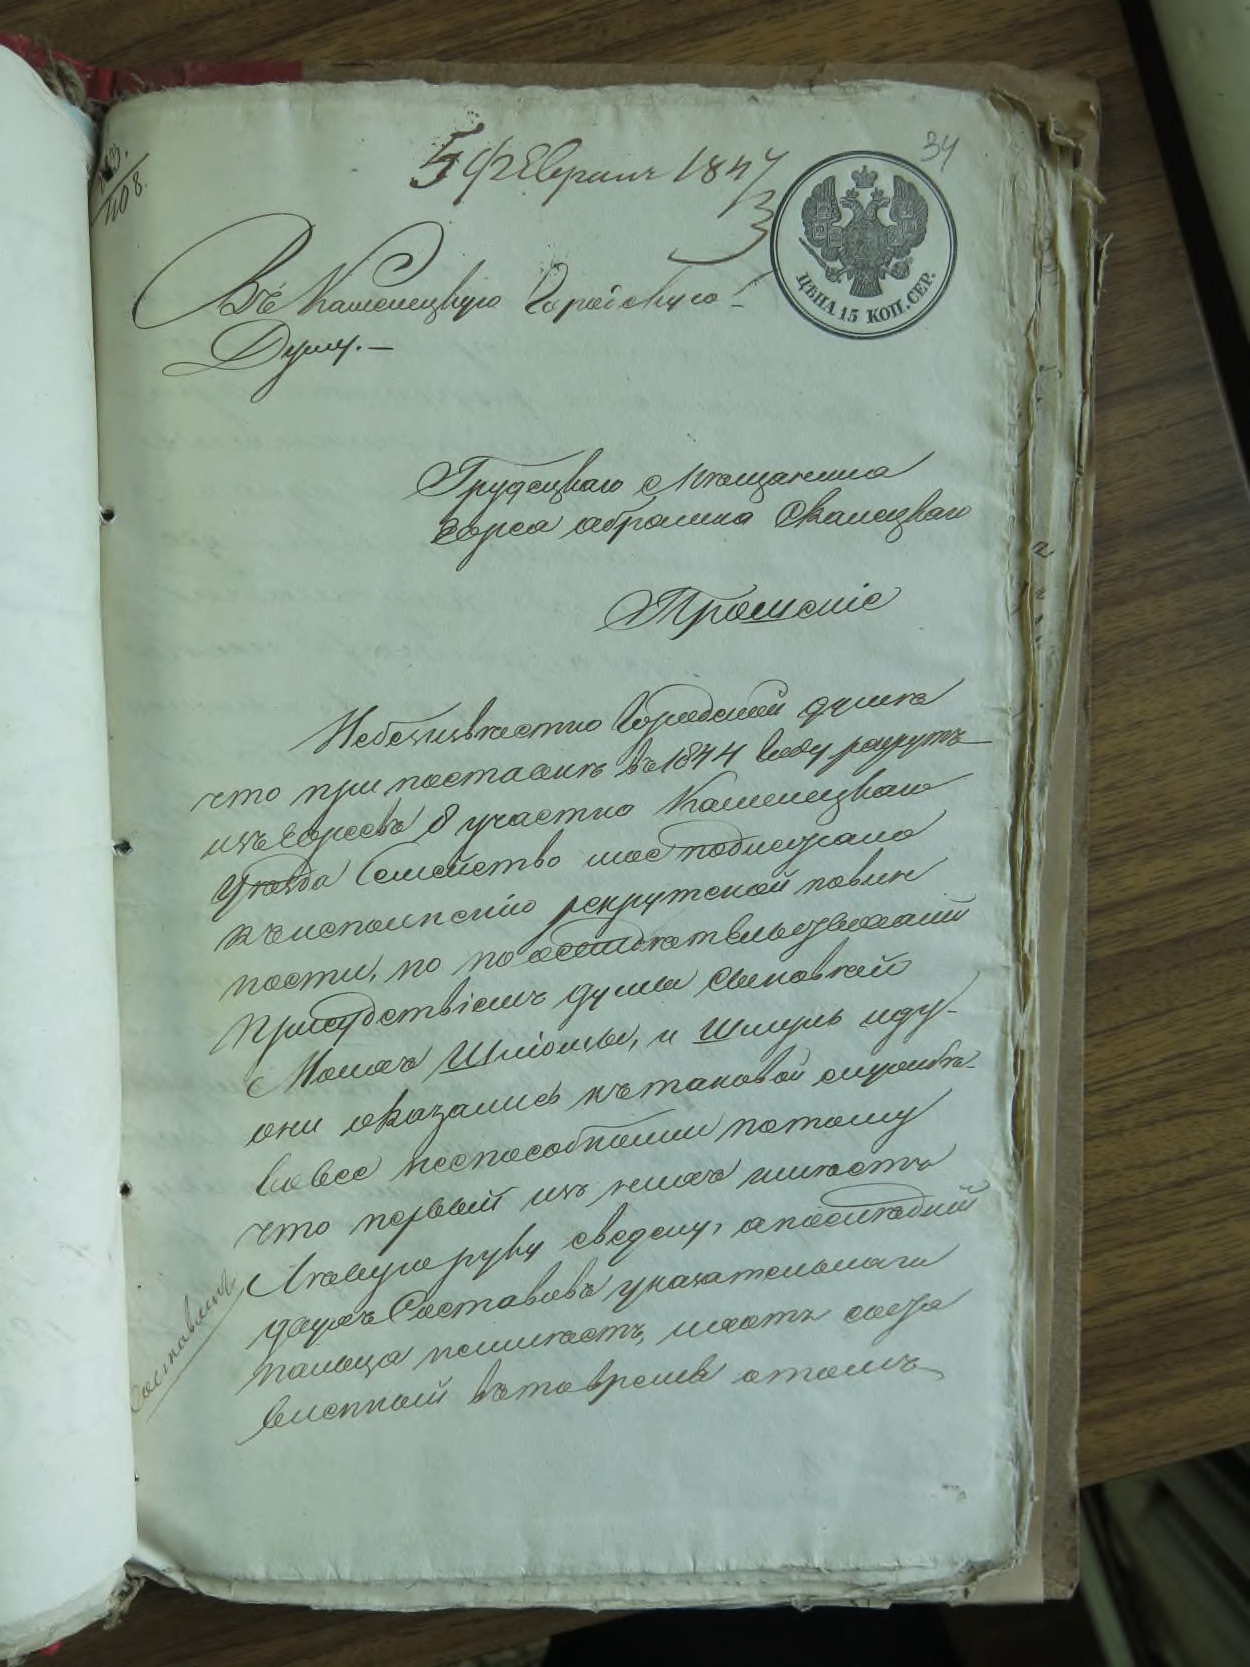 34
5 февраля 1847
3
408
ЦѢНА 15 КОП. СЕР.
Въ Каменецкую Городскую
Думу.—
Грудецкаго Мѣщанина
Ворса абрамка Скалецкаго
Прошеніе
Небезизвѣстно Городской думѣ
что при поставкѣ въ 1844 Году рекрутъ
изъ Евреевъ 8 участка Каменецкаго
Уѣзда Семейство мое подлежало
къ исполненію рекрутской повин
ности, но по
Присудствіемъ думы Сыновей
Моихъ Шліомы, и Шмуль иду-
они оказались къ таковой службѣ
вовсе неспособными потому
что первый изъ нихъ имѣетъ
Лѣвую руку сведену, а послѣдній
двухъ Составовъ указательнаго
пальца неимѣетъ, иактъ соста
вленный въ то время о томъ
Составленъ